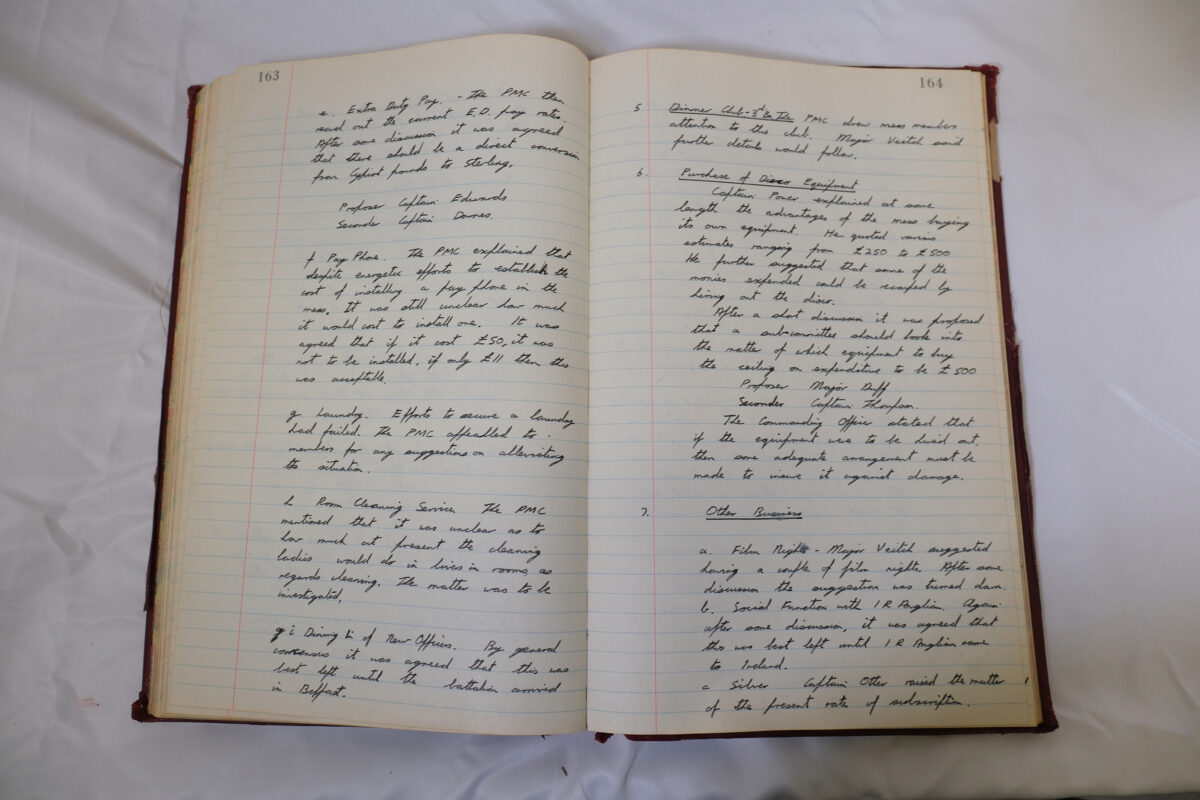 163
e. Extra Duty Pay. - The PMC then
read out the current E.D. pay rates.
After some discussion it was agreed
that there should be a direct conversion
from Cypriot pounds to Sterling.
Proposer Captain Edwards
Seconder Captain Downes.
f Pay Phone. The PMC explained that
despite energetic efforts to establish the
cost of installing a pay phone in the
mess, It was still unclear how much
it would cost to install one. It was
agreed that if it cost £50, it was
not to be installed, if only £11 then this
was acceptable.
g Laundry. Efforts to secure a laundry
had failed. The PMC appealled to
members for any suggestions on alleviating
the situation.
h Room Cleaning Service The PMC
mentioned that it was unclear as to
how much at present the cleaning
ladies would do in livers in rooms, as
regards cleaning. The matter was to be
investigated.
i Dining In of New Officers. By general
consensus it was agreed that this was
best left until the battalion arrived
in Belfast.
164
5 Dinner Club - 3rd Bn The PMC drew mess members
attention to the club. Major Veitch said
further details would follow.
6. Purchase of Disco Equipment
Captain Poner explained at some
length the advantages of the mess buying
its own equipment. He quoted various
estimates ranging from £250 to £500
He further suggested that some of the
monies expended could be recouped by
hiring out the disco.
After a short discussion it was proposed
that a subcommittee should look into
the matter of which equipment to buy
the ceiling on expenditure to be £500
Proposer Major Duff
Seconder Captain Thompson.
The Commanding Officer stated that
if the equipment were to be hired out,
then some adequate arrangement must be
made to insure it against damage.
7. Other Business
a. Film Nights - Major Veitch suggested
having a couple of film nights. After some
discussion the suggestion was turned down.
b. Social Function with 1 R Anglian. Again
after some discussion, it was agreed that
this was best left until 1 R Anglian came
to Ireland.
c Silver Captain Otter raised the matter
of the present rate of subscription.